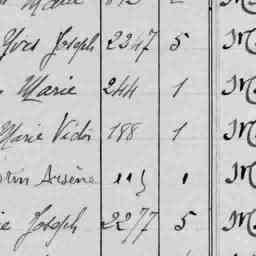 Marie
Yves Joseph 2347 5 M
Marie 244 1 M
Marie Victor 188 1 M
Arsène 113 1 M
Joseph 2277 5 M